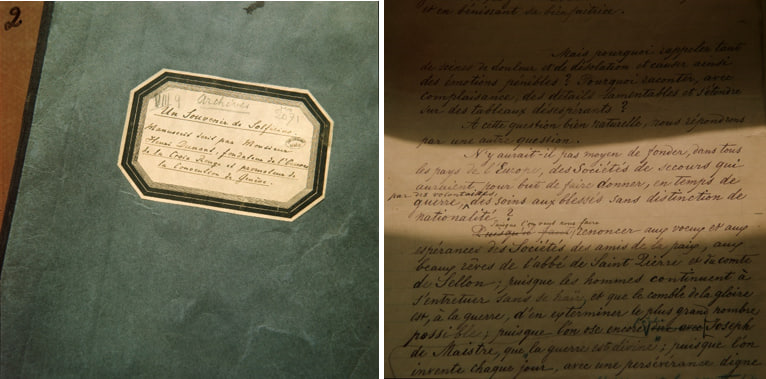 2
VIII 9
Archives
2071
Un Souvenir de Solferino
Manuscrit écrit par Monsieur
Henri Dunant, fondateur de l'Œuvre
de la Croix Rouge et promoteur de
la Convention de Genève.
et en bénissant sa bienfaitrice.
Mais pourquoi rappeler tant
de scènes de douleur et de désolation et causer ainsi
des émotions pénibles ? Pourquoi raconter, avec
complaisance, des détails lamentables et s'étendre
sur des tableaux désespérants ?
A cette question bien naturelle, nous répondrons
par une autre question.
N'y aurait-il pas moyen de fonder, dans tous
les pays de l'Europe, des Sociétés de secours qui
auraient pour but de faire donner, en temps de
par des volontaires,
guerre, des soins aux blessés sans distinction de
nationalité ?
Puisque l'on veut nous faire
renoncer aux vœux et aux
espérances des Sociétés des amis de la paix, aux
beaux rêves de l'abbé de Saint Pierre et du comte
de Sellon ; puisque les hommes continuent à
s'entretuer sans se haïr, et que le comble de la gloire
est, à la guerre, d'en exterminer le plus grand nombre
possible ; puisque l'on ose encore dire avec Joseph
de Maistre, que la guerre est divine ; puisque l'on
invente chaque jour, avec une persévérance digne